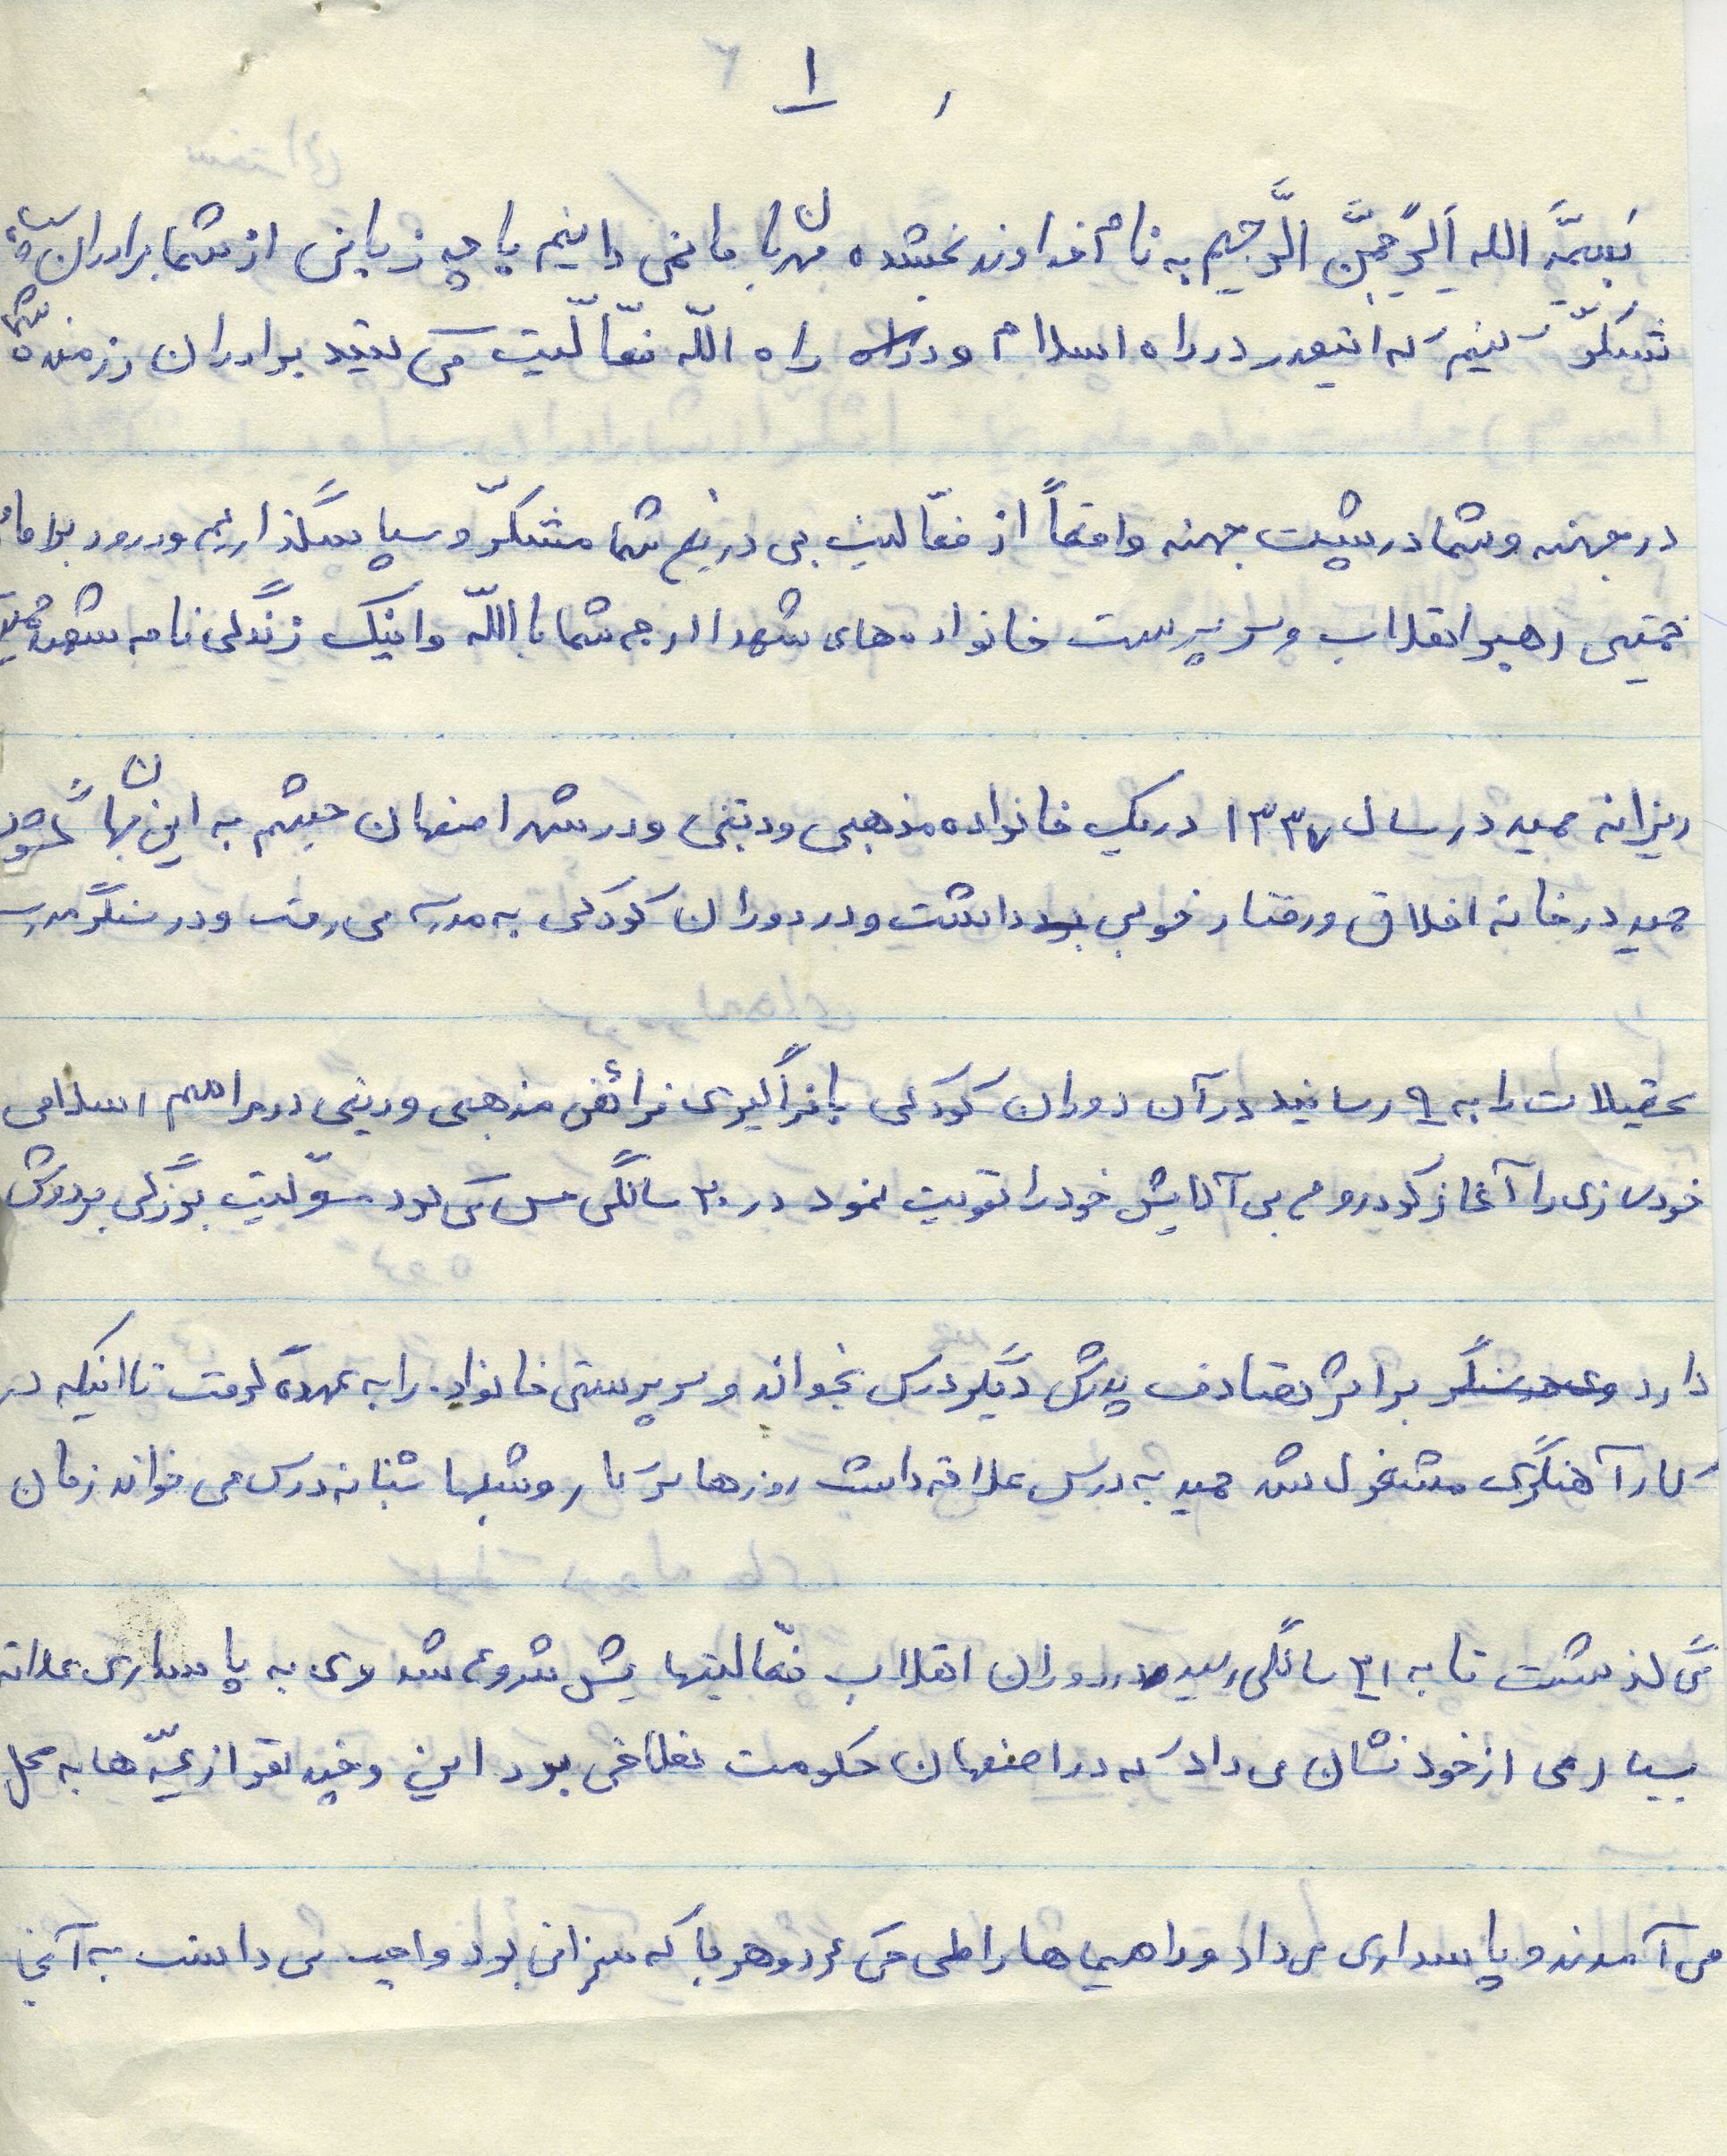 ۱
بسم الله الرحمن الرحیم به نام خداوند بخشنده مهربان ما نمی دانیم با چه زبانی از شما برادران
تشکّر کنیم که اینقدر در راه اسلام و در راه اللّه فعّالّیت می کنید برادران رزمنده
در جبهه و شما در پشت جبهه واقعاً از فعّالیت بی دریغ شما متشکّر و سپاسگذاریم و درود بر امام
خمینی رهبر انقلاب و سرپرست خانواده های شهدا اجر شما با اللّه و اینک زندگی نامه شهید حمید
ریزانه حمید در سال ۱۳۳۷ در یک خانواده مذهبی و دینی و در شهر اصفهان چشم به این جهان گشود
حمید در خانه اخلاق و رفتار خوبی داشت و در دوران کودکی به مدرسه می رفت و در سنگر مدرسه
تحصیلات را به ۹ رسانید در آن دوران کودکی با فراگیری فرائض مذهبی و دینی در مراسم اسلامی
خودسازی را آغاز کرد و روح بی آلایش خود را تقویت نمود در ۲۰ سالگی حس می کرد مسوّلیت بزرگی بر دوش
دارد بر اثر تصادف پدرش دیگر درس نخواند و سرپرستی خانواده را به عهده گرفت تا اینکه در
کار آهنگری مشغول شد حمید به درس علاقه داشت روزها سر کار و شبها شبانه درس می خواند زمان
می گذشت تا به ۲۱ سالگی رسید در دوران انقلاب فعّالیتهایش شروع شد وی به پاسداری علاقه
بسیاری از خود نشان می داد که در اصفهان حکومت نظامی بود این وحید تقوا زیّه ها به محل
می آمدند و پاسداری می داد و راهپیما ها را طی می کرد و هر جا که سخرانی بود واجب می دانست به آنجا